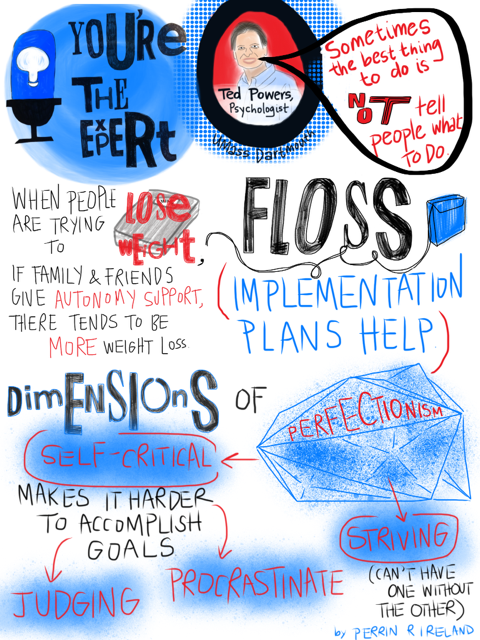 YOU'RE
THE
EXPERT
Ted Powers,
Psychologist
UMass Dartmouth
Sometimes
the best thing
to do is
NOT tell
people what
TO DO
WHEN PEOPLE
ARE TRYING
TO
LOSE
WEIGHT,
IF FAMILY & FRIENDS
GIVE AUTONOMY SUPPORT,
THERE TENDS TO BE
MORE WEIGHT LOSS
FLOSS
(IMPLEMENTATION
PLANS HELP)
DIMENSIONS OF
PERFECTIONISM
SELF-CRITICAL
MAKES IT HARDER
TO ACCOMPLISH
GOALS
JUDGING
PROCRASTINATE
STRIVING
(CAN'T HAVE
ONE WITHOUT
THE OTHER)
by PERRIN R IRELAND